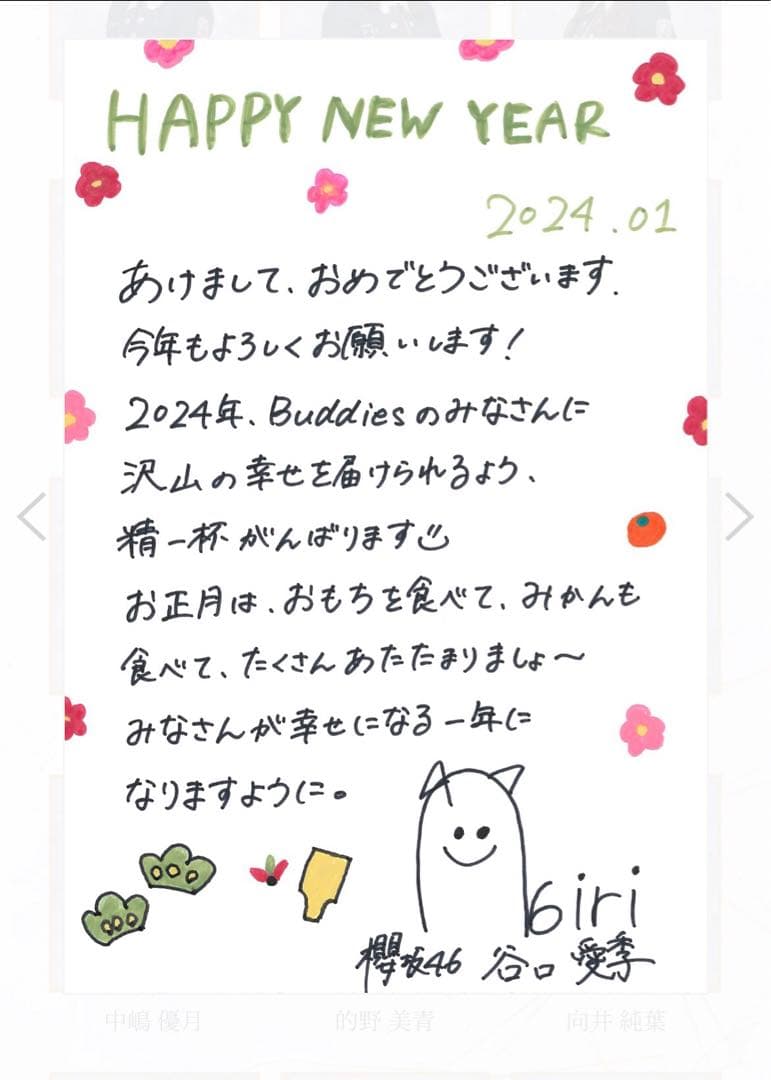 HAPPY NEW YEAR
2024.01
あけまして、おめでとうございます.
今年もよろしくお願いします!
2024年、Buddiesのみなさんに
沢山の幸せを届けられるよう、
精一杯がんばります
お正月は、おもちを食べて、みかんも
食べて、たくさんあたたまりましょ〜
みなさんが幸せになる一年に
なりますように。
6iri
櫻坂46 谷口 愛季
中嶋 優月 的野 美青 向井 純葉